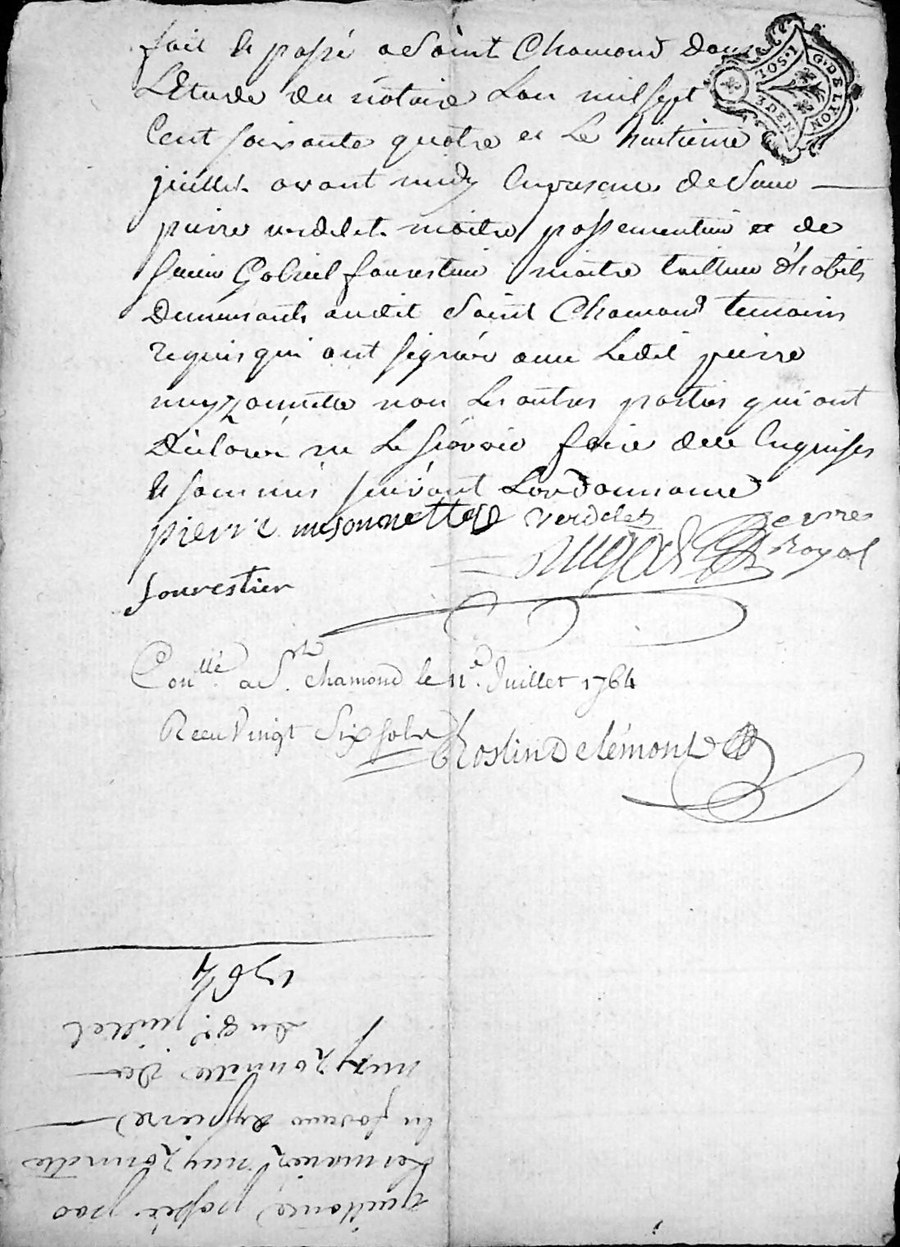 fait et passé a Saint Chamond dans
L'Etude du notaire Lan mil sept
Cent soixante quatre et Le huitieme
juillet avant midy En presence de Sieur
pierre verdelet maitre passementier et de
Sieur Gabriel fourestier maitre tailleur d'habits
Demeurants audit Saint Chamond temoins
requis qui ont signé avec Ledit pierre
non Les autres parties qui ont
Declaré ne Le sçavoir faire de ce Enquises
et sommées suivant Lordonnance
pierre mesonnette verdelet
royal
fourestier
Conllé a St. chamond le 11e. Juillet 1764
Receu Vingt Six sols
G. DE LYON
1. SOL.
3 DEN.
quittance passée par
En faveur de pierre
du 8e. juillet
1764